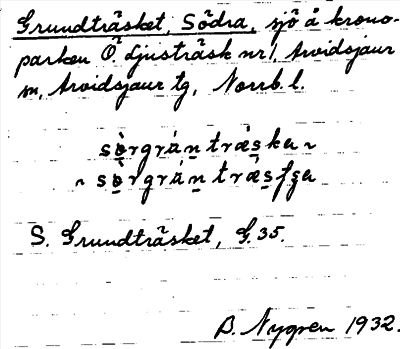 Grundträsket, Södra, sjö å krono-
parken Ö. Ljusträsk nr 1, Arvidsjaur
sn, Arvidsjaur tg, Norrb. l.
sòrgrán træska ~
~ sòrgrán træsfsa
S. Grundträsket, G. 35.
B. Nygren 1932.